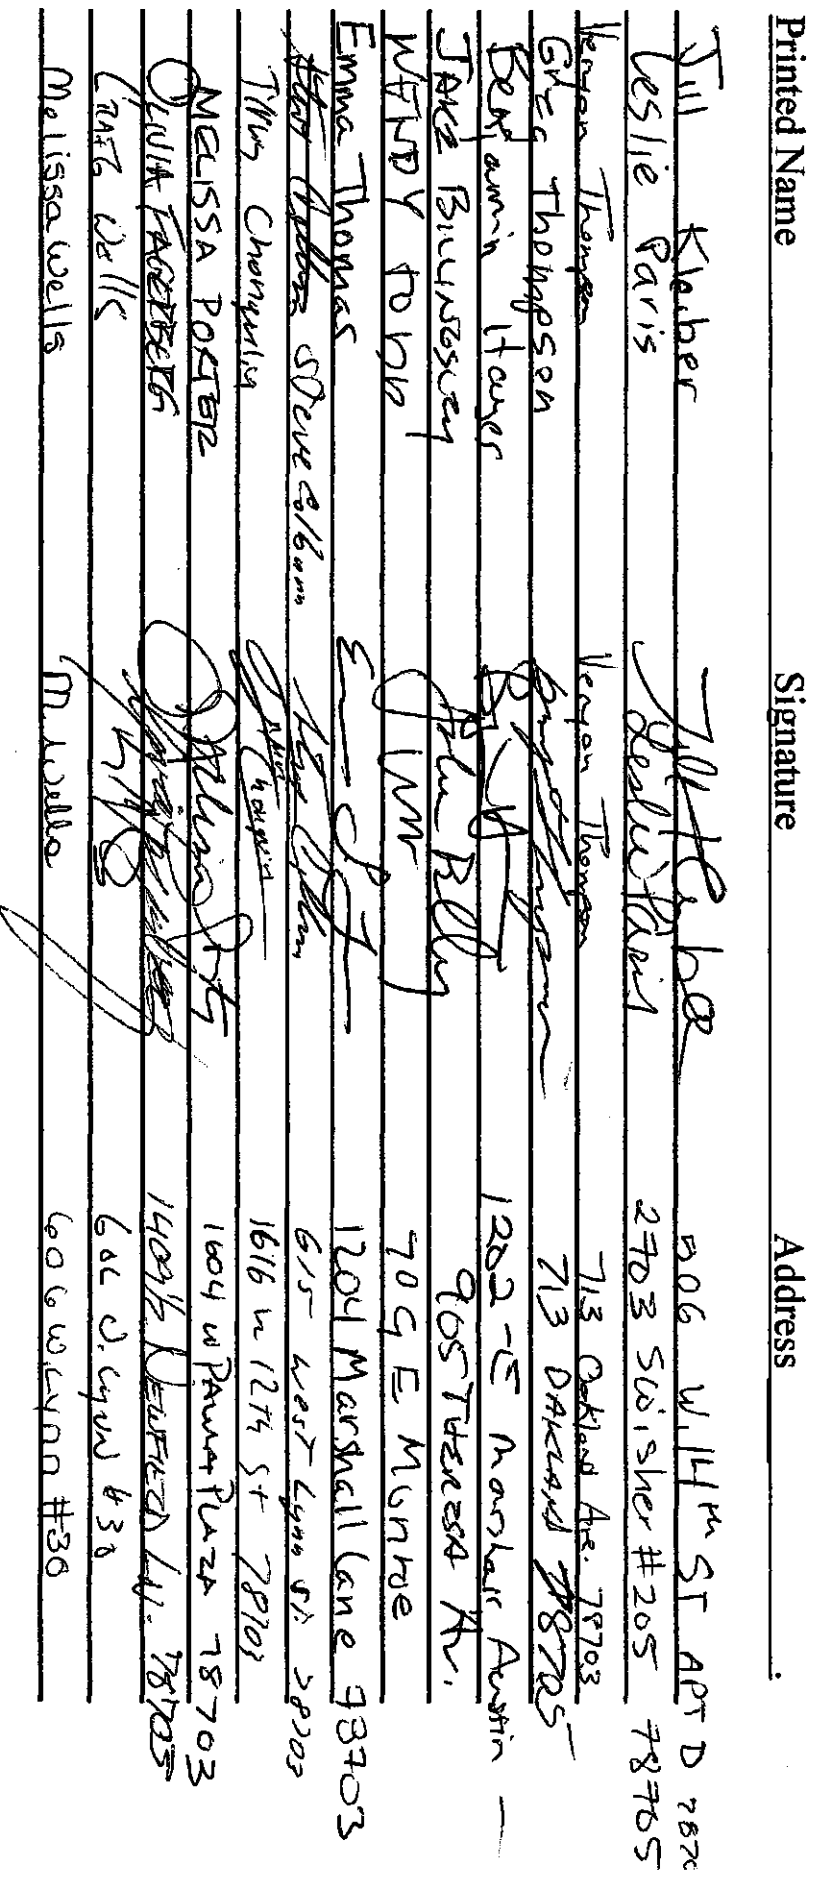 Printed Name Signature Address
Jill Kleiber Jill Kleiber 506 W. 14th ST APT D
Leslie Paris Leslie Paris 2703 Swisher #205 78705
Vernon Thompson Vernon Thompson 713 Oakland Ave. 78703
Greg Thompson 713 OAKLAND 78705
Benjamin Hayes 1202-E Marshall Austin
JAKE BILLINGSLEY 905 THERESA Av.
WENDY TODD 709 E Monroe
Emma Thomas 1204 Marshall Lane 78703
Steve Collum 615 West Lynn St. 78703
Timmy Chongulin 1616 W 12th St 78703
MELISSA PORTER 1604 W PALMA PLAZA 78703
OLIVIA FAGERBERG 1409½ NEWFIELD LN. 78705
CRAIG Wells 606 W. Lynn #30
Melissa Wells M. Wells 606 W. Lynn #30